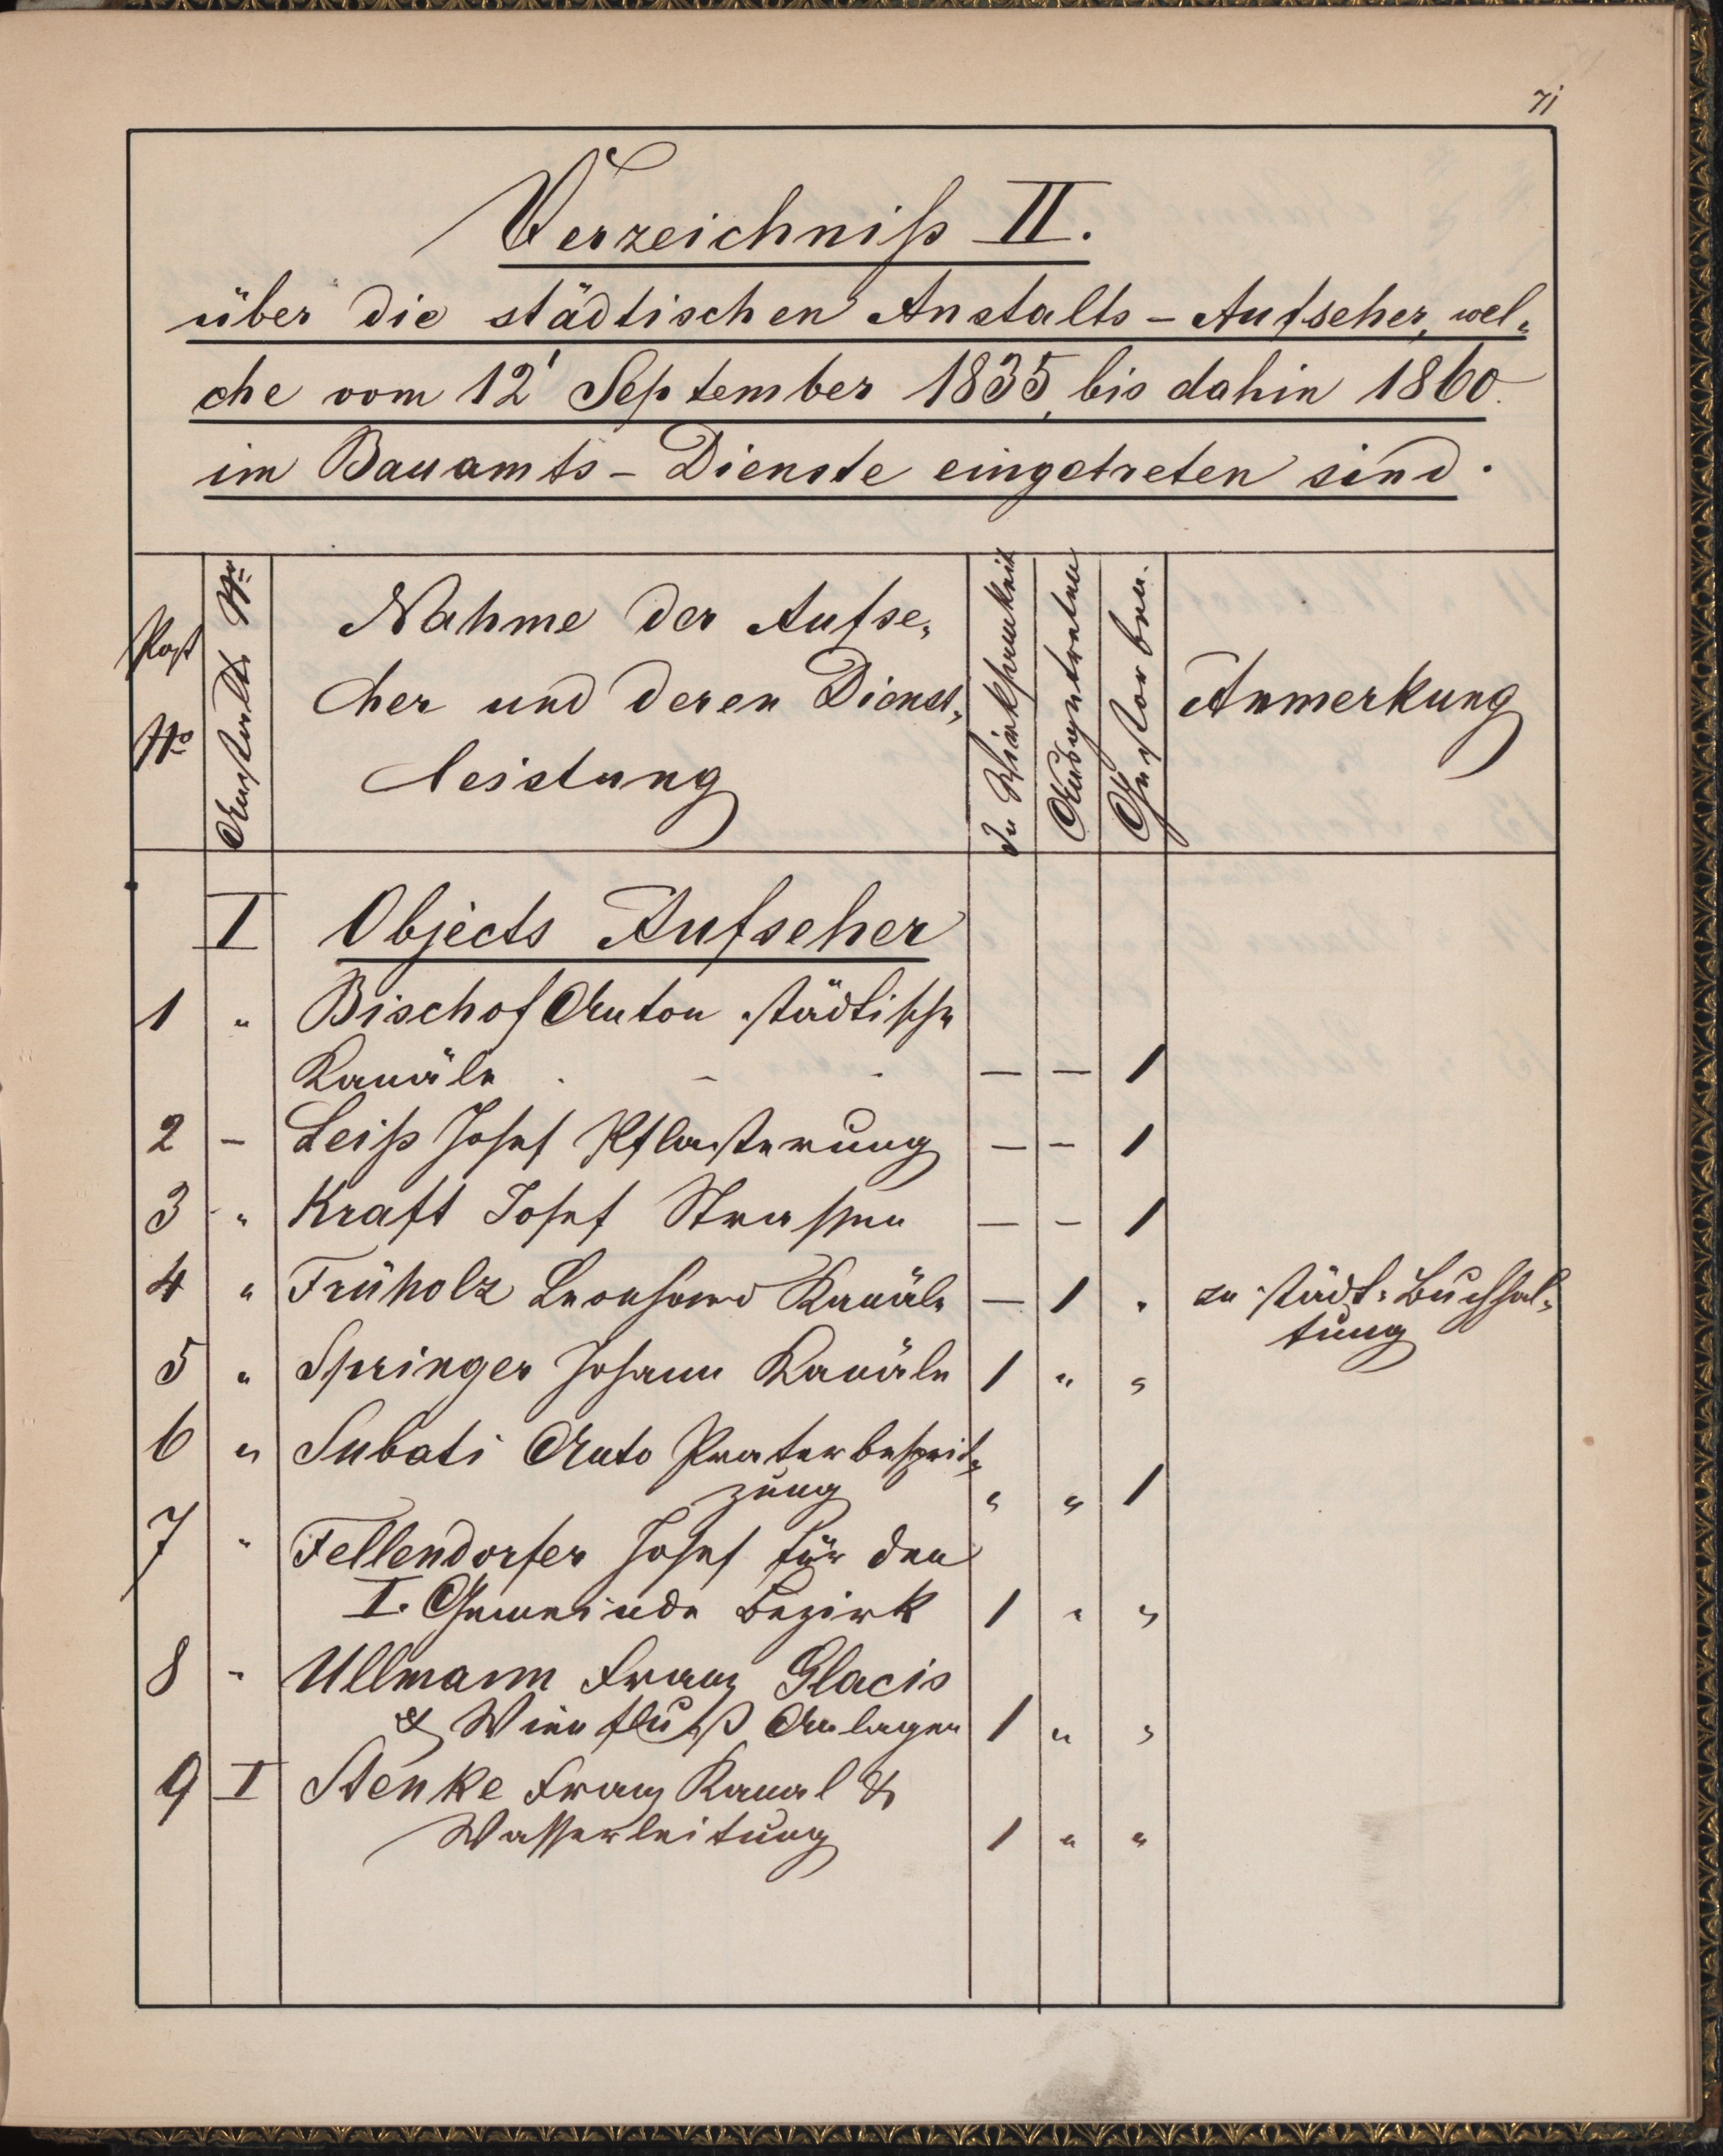 71
Verzeichniß II.
über die städtischen Anstalts-Aufseher, wel„
che vom 12' September 1835, bis dahin 1860.
im Bauamts-Dienste eingetreten sind.
Post No
Anstalts No
Nahme der Aufse„
her und deren Dienst„
leistung
In Wirksamkeit
Ausgetreten
Gestorben.
Anmerkung
I Objects Aufseher
1 " Bischof Anton städtische
Kanäle . - . — — 1
2 – Leiß Josef Pflasterung — – 1
3 " Kraft Josef Strassen — – 1
4 " Früholz Leonhard Kanäle — 1 " zu städt. Buchhal„
tung
5 " Springer Johann Kanäle 1 " "
6 " Subati Anto Praterbesprit„
zung " " 1
7 " Fellendorfer Josef für den
I. Gemeinde Bezirk 1 " "
8 " Ullmann Franz Glacis
& Wienfluß Anlagen 1 " "
9 I Stenke Franz Kanal &
Wasserleitung 1 " "